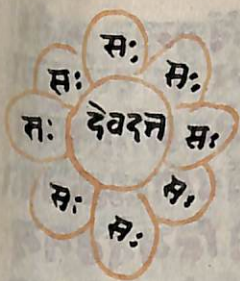 सः
सः
सः
सः
देवदत्त
सः
सः
सः
सः